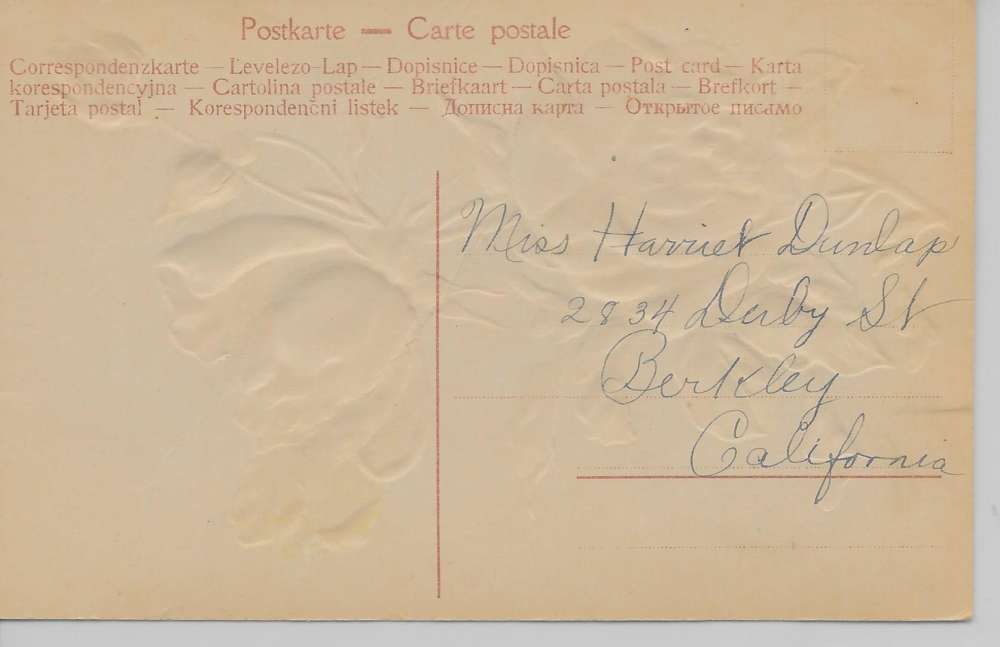 Postkarte — Carte postale
Correspondenzkarte — Levelezo-Lap — Dopisnice — Dopisnica — Post card — Karta
korespondencyjna — Cartolina postale — Briefkaart — Carta postala — Brefkort —
Tarjeta postal — Korespondenčni listek — Дописна карта — Открытое письмо
Miss Harriet Dunlap
2834 Derby St
Berkley
California